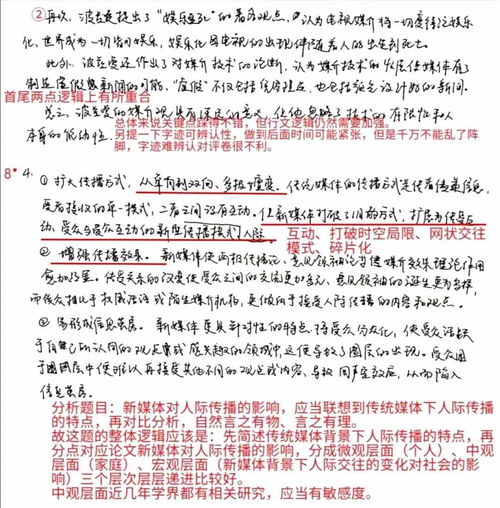 ②再次，波兹曼提出了“娱乐至死”的著名观点，认为电视媒介将一切变得泛娱乐
化，世界成为一切皆为娱乐，娱乐化因电视的出现
此外，波兹曼还作出了对媒介技术的论断，认为媒介技术的发展使媒体有了
制造虚假新闻的可能，“虚假”不仅包括
首尾两点逻辑上有所重合
总之，波兹曼的媒介观具有深远的意义，但他忽略了技术的有限性和人
总体来说关键点踩得不错，但行文逻辑仍然需要加强。
本身的能动性。
另提一下字迹可辨认性，做到后面时间可能紧张，但是千万不能乱了阵
脚，字迹难辨认对评卷很不利。
8* 4.
①扩大传播方式，从单向到双向、多极嬗变。传统媒体的传播方式是传者传递信息，
受者接收的单一模式，二者之间没有互动。但新媒体打破了旧的方式，扩展为传受互
动、受众与受众互动的新型传播模式
互动、打破时空局限、网状交往
模式、碎片化
②增强传播效果。新媒体使两极传播论、意见领袖论等媒介效果理论作用
愈加凸显。传受关系的改变使受众之间的交流更加多元，意见领袖的诞生更为多样，
而传众相比于权威话语或陌生媒介机构，更倾向于接受人际传播的内容和观点。
③易形成信息茧房。新媒体更具针对性的特点将受众分众化，使受众活跃
于自己所认同的观点或感兴趣的领域中，这便导致了圈层的出现。受众困
于圈层中便难以再接受其他不同的观点或内容，导致回声室效应，从而陷入
信息茧房。
分析题目：新媒体对人际传播的影响，应当联想到传统媒体下人际传播
的特点，再对比分析，自然言之有物、言之有理。
故这题的整体逻辑应该是：先简述传统媒体背景下人际传播的特点，再
分点对应论文新媒体对人际传播的影响，分成微观层面（个人）、中观
层面（家庭）、宏观层面（新媒体背景下人际交往的变化对社会的影
响）三个层次层层递进比较好。
中观层面近几年学界都有相关研究，应当有敏感度。